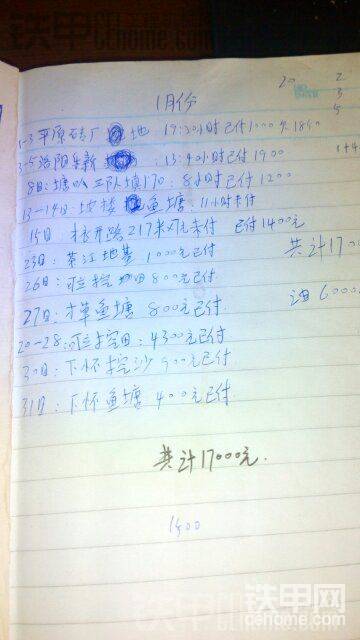 铁甲网
cehome.com
1月份
20
2
3
5
1-3平原砖厂 地 19:30小时已付1000欠1850
3-5洛阳乐新 13:40小时已付1900
1+4
8日:塘队三队填170:8小时已付1200
13-14日:地楼 鱼塘:11小时未付
15日:开路217米 未付 已付1400元
23日: 江地基 1000元已付
共计1700
26日: 挖 田 800元已付
27日: 草鱼塘 800元已付
油6000
20-28: 挖田:4300元已付
30日:下怀挖沙900元已付
31日:下怀鱼塘 400元已付
共计17000元.
1500
铁甲网
cehome.com